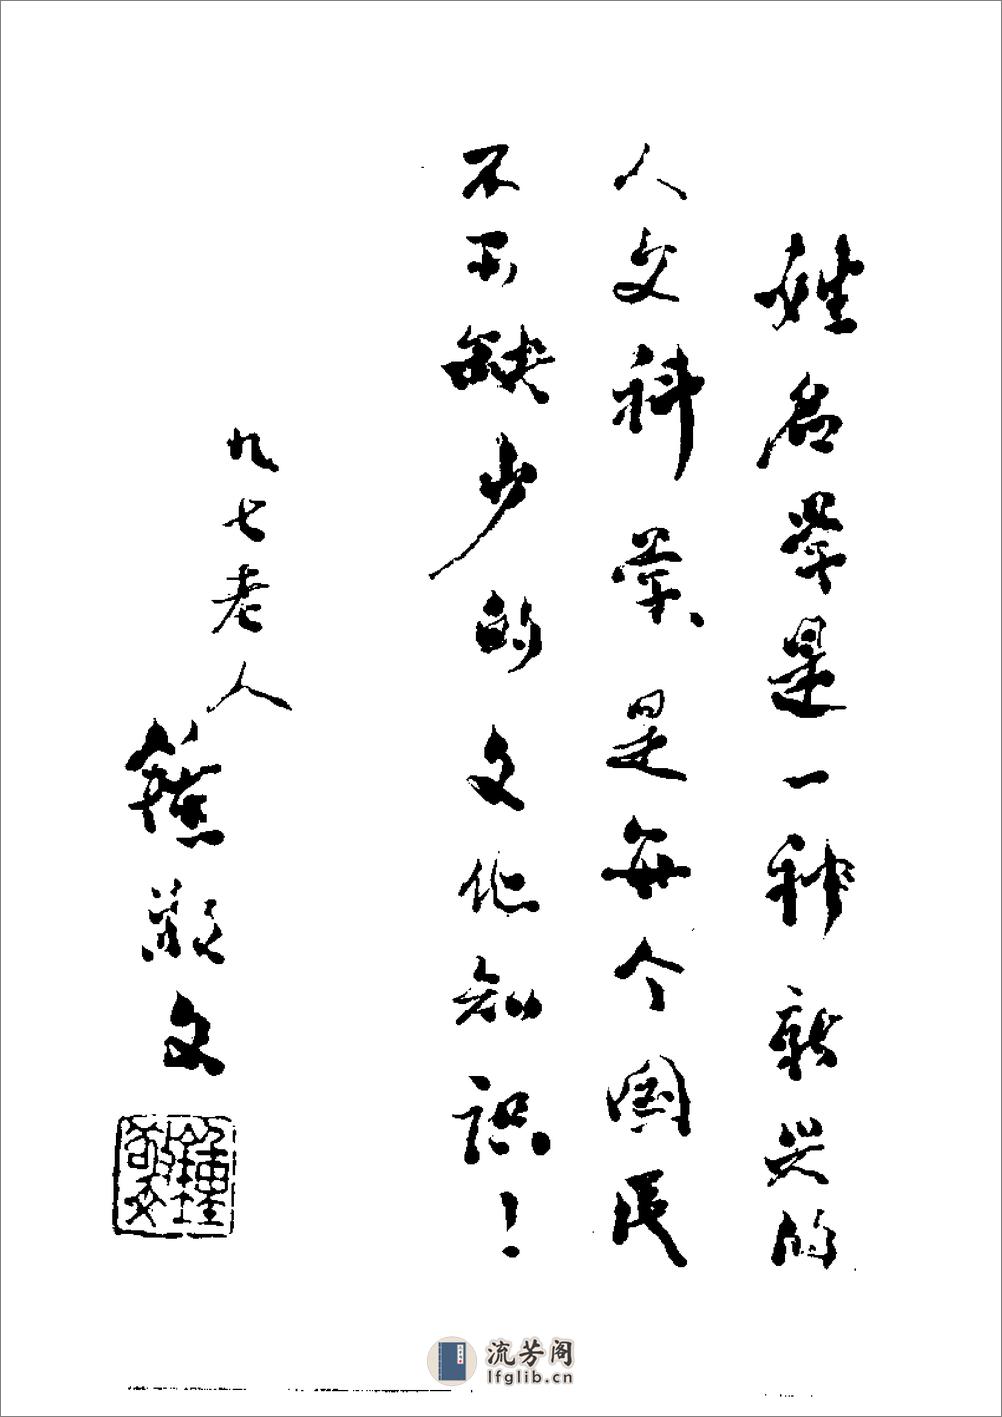 姓名学是一种新兴的
人文科学、是每个国民
不可缺少的文化知识！
九七老人
鍾敬文
鍾敬文
流芳阁
lfglib.cn